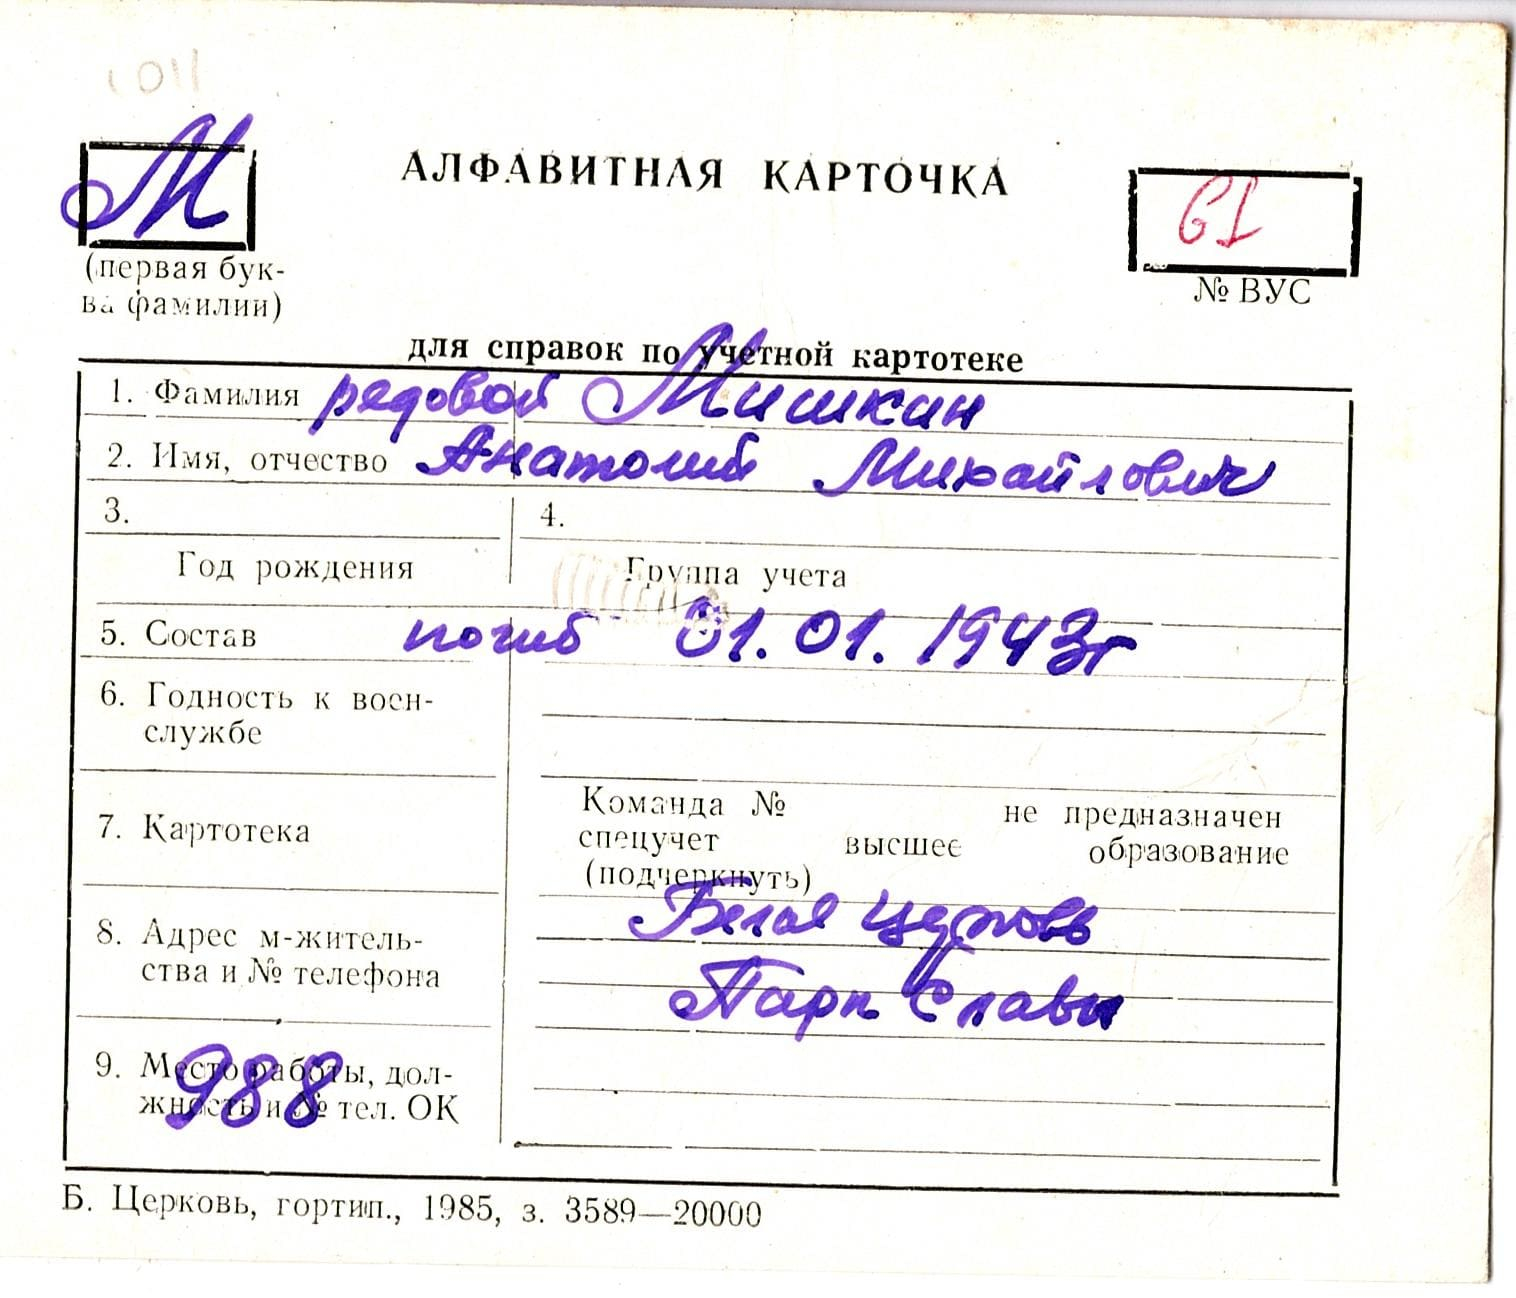 М
АЛФАВИТНАЯ КАРТОЧКА
61
(первая бук-
ва фамилии)
№ ВУС
для справок по учетной картотеке
1. Фамилия редовой Мишкин
2. Имя, отчество Анатолий Михайлович
3.
4.
Год рождения
Группа учета
5. Состав погиб 01.01.1943г
6. Годность к воен-
службе
7. Картотека
Команда № не предназначен
спецучет высшее образование
(подчеркнуть)
8. Адрес м-житель-
ства и № телефона
Белая Церковь
Парк Славы
9. Место работы, дол-
жность и № тел. ОК
988
Б. Церковь, гортип., 1985, з. 3589—20000